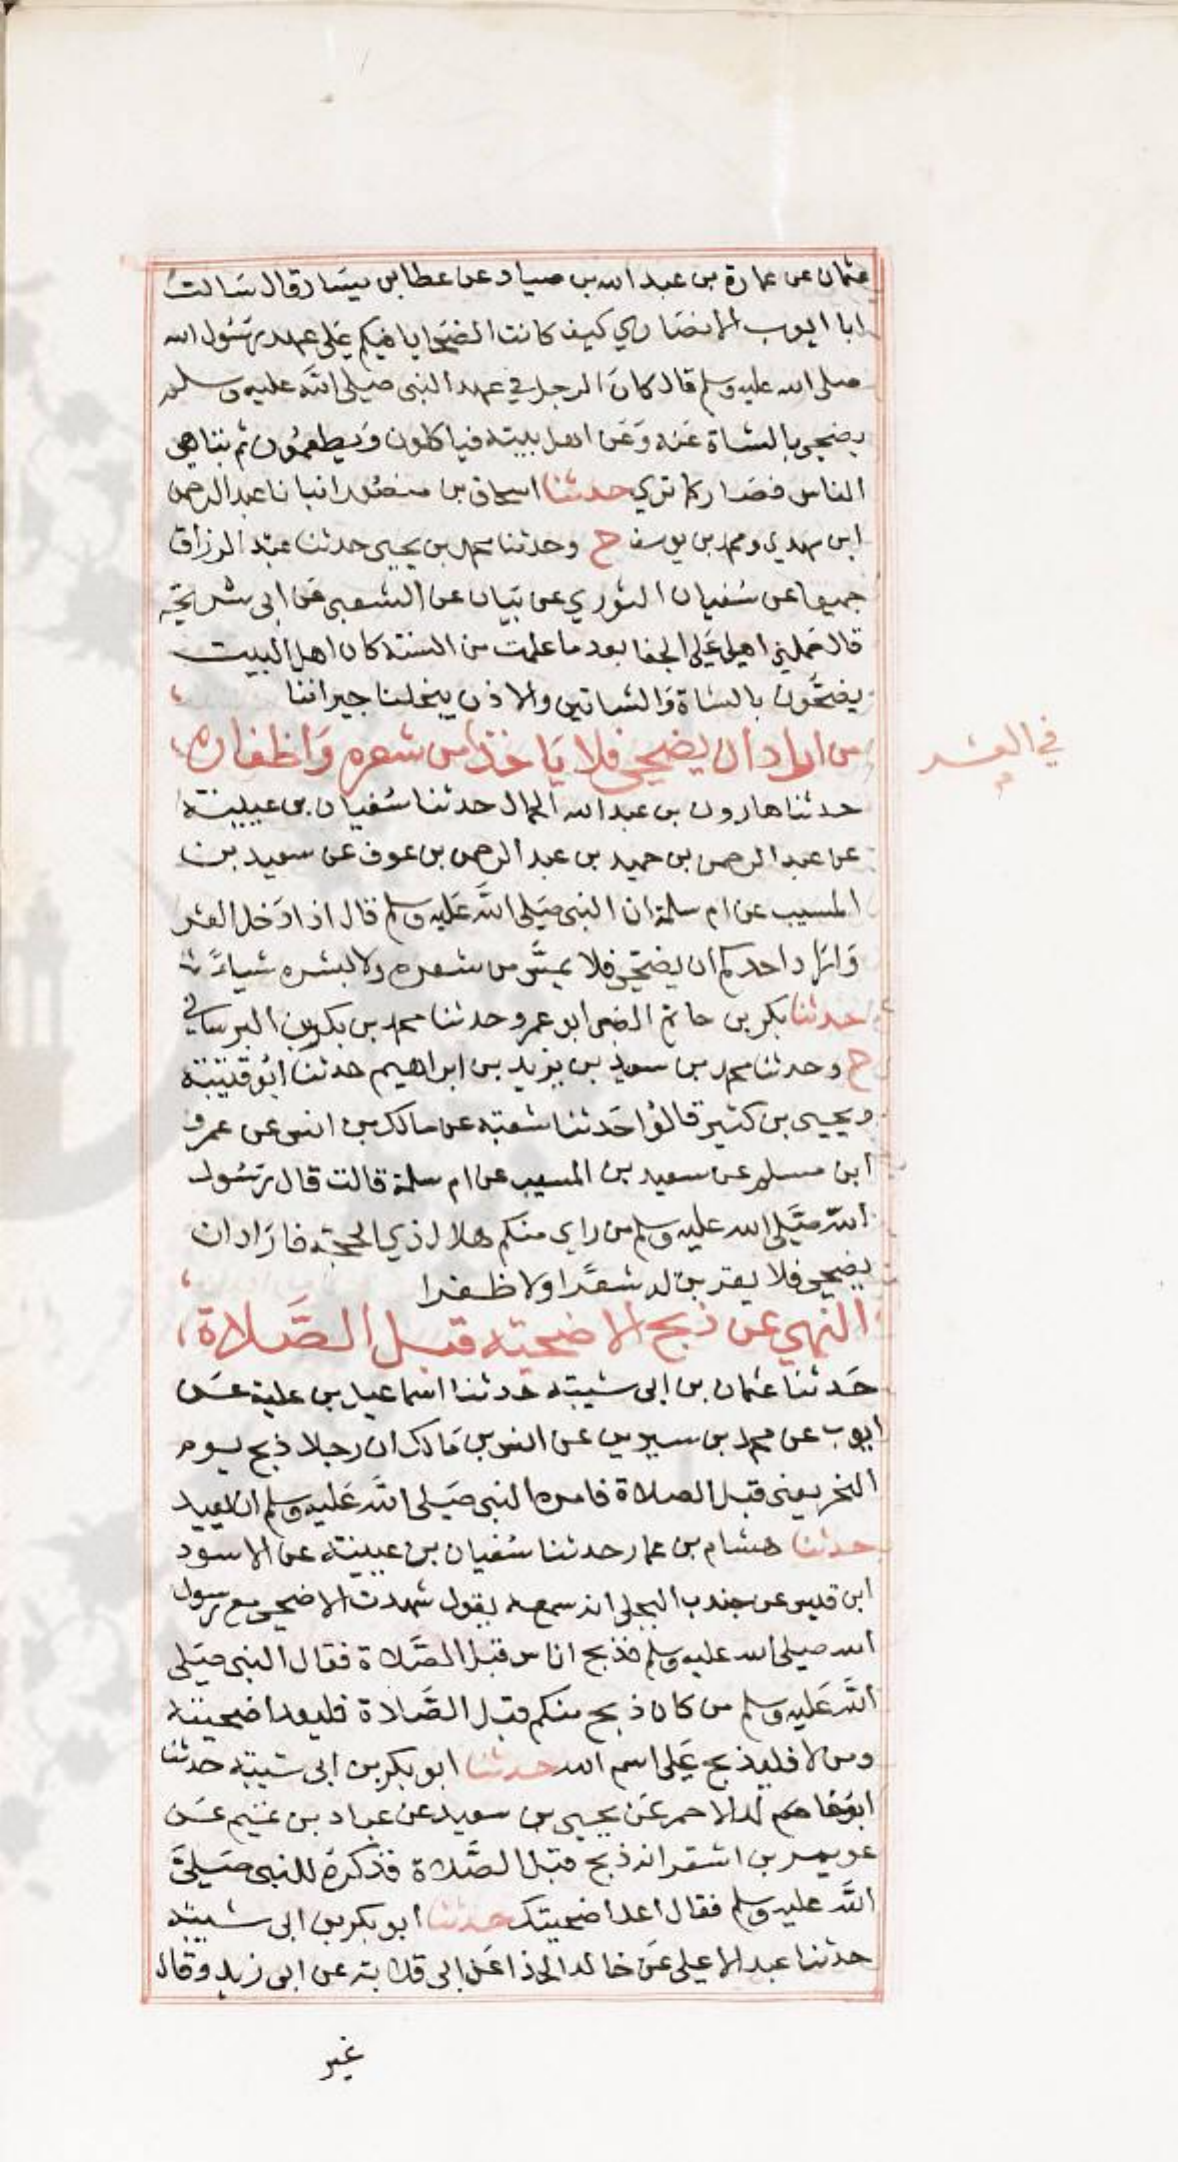 عثمان عن عمارة بن عبد الله بن صياد عن عطا بن يسار قال سالت
ابا ايوب الانصاري كيف كانت الضحايا فيكم على عهد رسول الله
صلى الله عليه وسلم قال كان الرجل في عهد النبي صلى الله عليه وسلم
يضحي بالشاة عنه وعن اهل بيته فياكلون ويطعمون ثم تباهى
الناس فصار كما ترى حدثنا اسحاق بن منصور انبانا عبد الرحمن
ابن مهدي ومحمد بن يوسف ح وحدثنا محمد بن يحيى حدثنا عبد الرزاق
جميعا عن سفيان الثوري عن بيان عن الشعبي عن ابي سريحة
قال حملني اهلي على الجفا بعد ما علمت من السنة كان اهل البيت
يضحون بالشاة والشاتين والاذن يبخلنا جيراننا
من اراد ان يضحي فلا ياخذ من شعره واظفاره
في العشر
حدثنا هارون بن عبد الله الحمال حدثنا سفيان بن عيينة
عن عبد الرحمن بن حميد بن عبد الرحمن بن عوف عن سعيد بن
المسيب عن ام سلمة ان النبي صلى الله عليه وسلم قال اذا دخل العشر
واراد احدكم ان يضحي فلا يمس من شعره ولا بشره شياء
حدثنا بكر بن حاتم الضبي ابو عمرو حدثنا محمد بن بكر بن البرساني
ح وحدثنا محمد بن سعيد بن يزيد بن ابراهيم حدثنا ابو قتيبة
ويحيى بن كثير قالوا حدثنا شعبة عن مالك بن انس عن عمرو
ابن مسلم عن سعيد بن المسيب عن ام سلمة قالت قال رسول
الله صلى الله عليه وسلم من راى منكم هلال ذي الحجة فاراد ان
يضحي فلا يقربن له شعرا ولا ظفرا
النهي عن ذبح الاضحية قبل الصلاة
حدثنا عثمان بن ابي شيبة حدثنا اسماعيل بن علية عن
ايوب عن محمد بن سيرين عن انس بن مالك ان رجلا ذبح يوم
النحر يعني قبل الصلاة فامره النبي صلى الله عليه وسلم ان يعيد
حدثنا هشام بن عمار حدثنا سفيان بن عيينة عن الاسود
ابن قيس عن جندب البجلي انه سمعه يقول شهدت الاضحى مع رسول
الله صلى الله عليه وسلم فذبح اناس قبل الصلاة فقال النبي صلى
الله عليه وسلم من كان ذبح منكم قبل الصلاة فليعد اضحيته
ومن لا فليذبح على اسم الله حدثنا ابو بكر بن ابي شيبة حدثنا
الاحمر عن يحيى بن سعيد عن عباد بن تميم عن
عويمر بن اشقر انه ذبح قبل الصلاة فذكره للنبي صلى
الله عليه وسلم فقال اعد اضحيتك حدثنا ابو بكر بن ابي شيبة
حدثنا عبد الاعلى عن خالد الحذا عن ابي قلابة عن ابي زيد وقال
غير